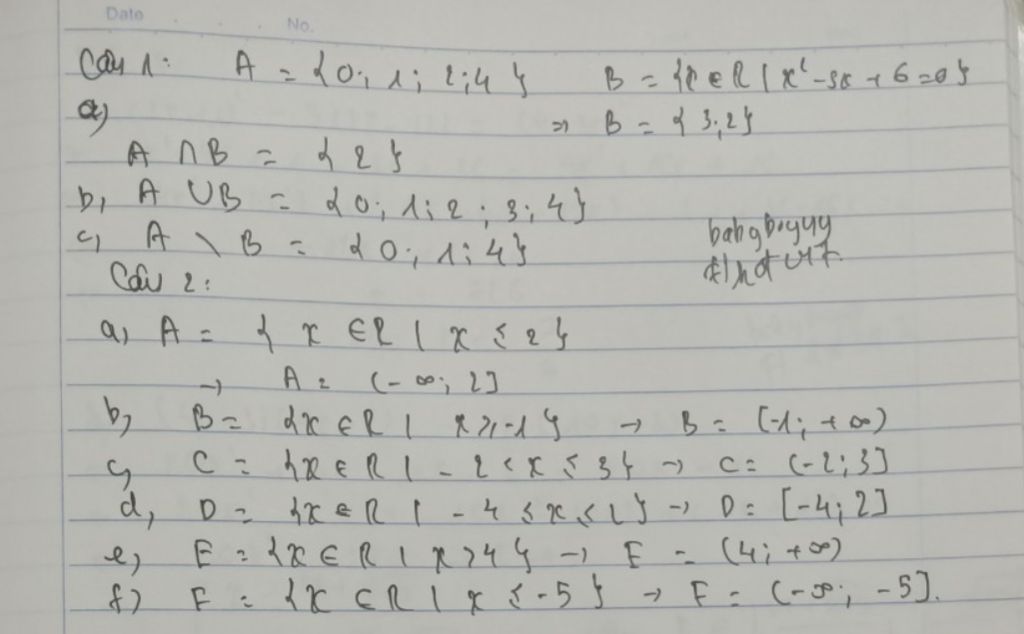 Date No.
Câu 1: A = {0; 1; 2; 4} B = {x ∈ R | x² - 5x + 6 = 0}
a) => B = {3; 2}
A ∩ B = {2}
b, A ∪ B = {0; 1; 2; 3; 4}
c, A \ B = {0; 1; 4}
Câu 2:
a) A = {x ∈ R | x ≤ 2}
→ A = (-∞; 2]
b, B = {x ∈ R | x ≥ -1} → B = [-1; +∞)
c, C = {x ∈ R | -2 < x ≤ 3} → C = (-2; 3]
d, D = {x ∈ R | -4 ≤ x ≤ 2} → D = [-4; 2]
e) E = {x ∈ R | x > 4} → E = (4; +∞)
f) F = {x ∈ R | x ≤ -5} → F = (-∞; -5].